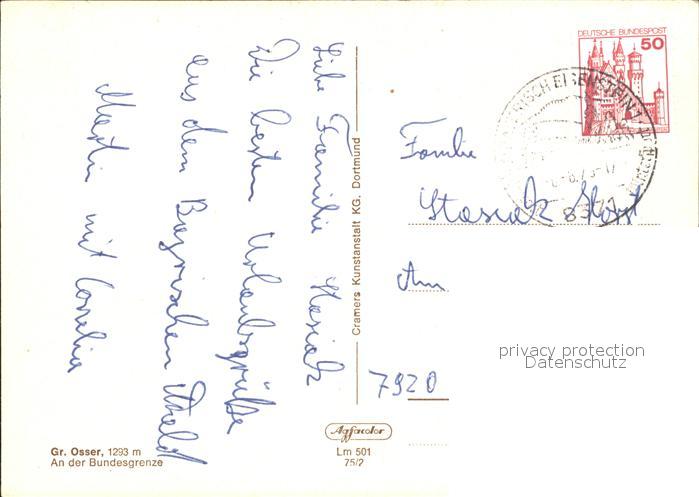 Liebe Familie Stasiak
Die besten Urlaubsgrüße
aus dem Bayrischen Wald
Martin mit Cornelia
Cramers Kunstanstalt KG. Dortmund
DEUTSCHE BUNDESPOST
50
EISENSTEIN
8371
Familie
Stasiak Horst
Am
7920
privacy protection
Datenschutz
Agfacolor
Gr. Osser, 1293 m
An der Bundesgrenze
Lm 501
75/2